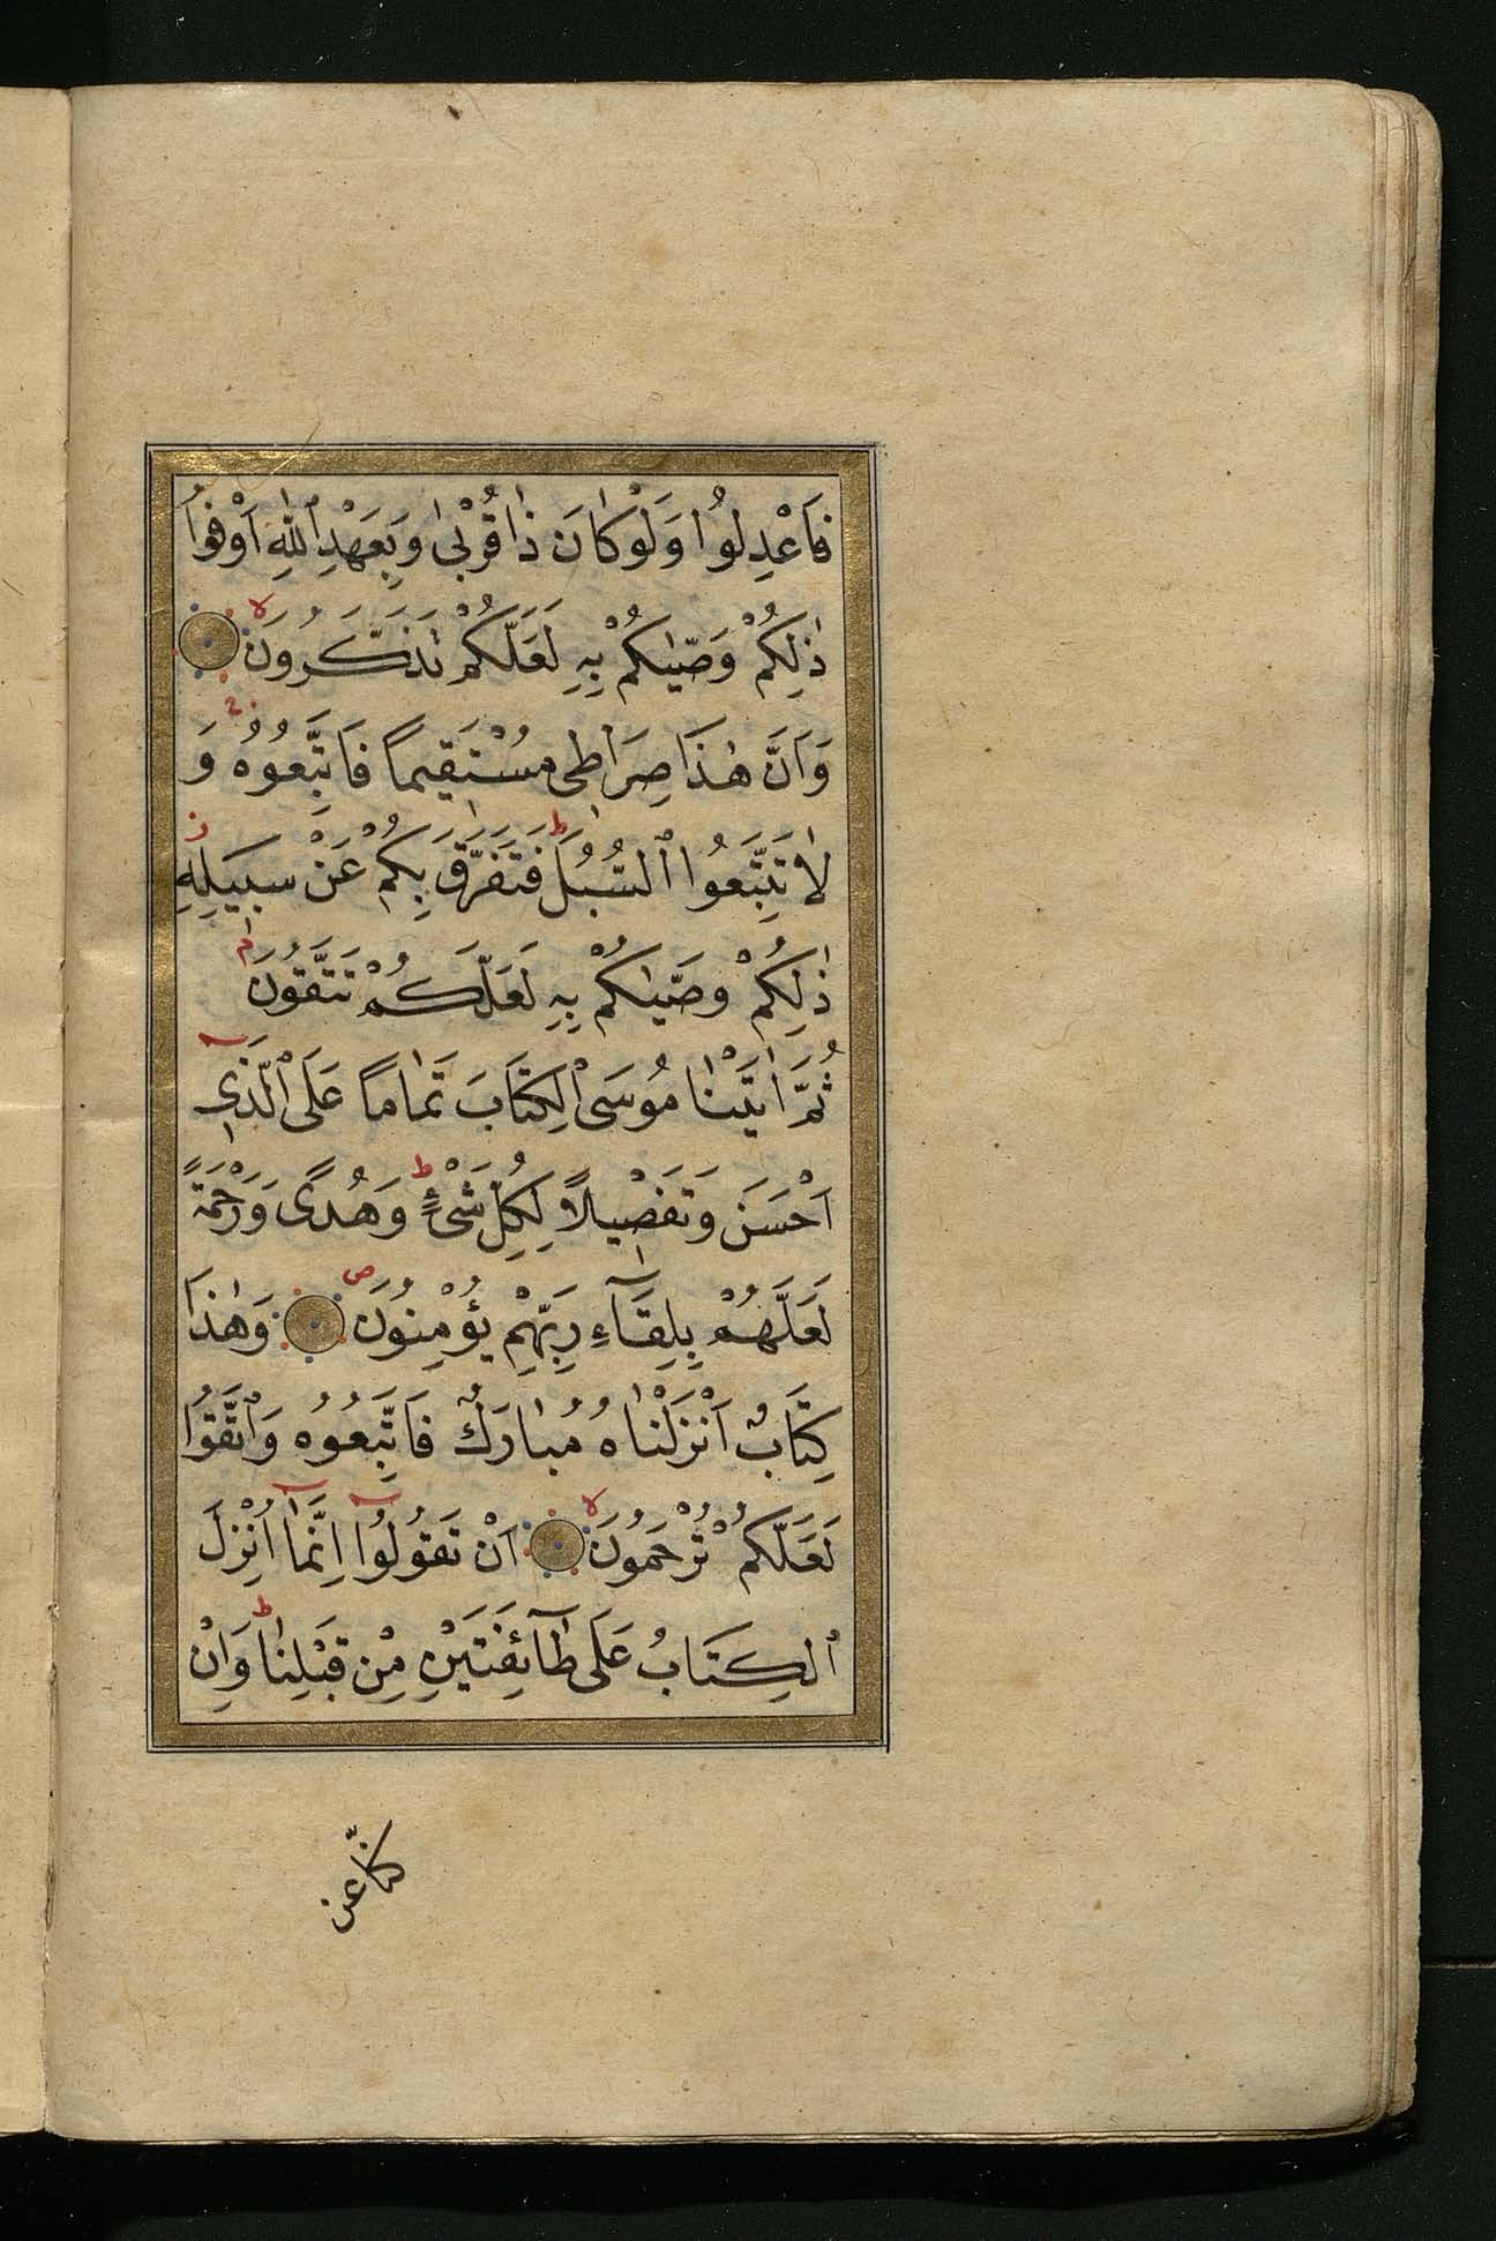 فَاعْدِلُوا وَلَوْ كَانَ ذَا قُرْبٰى وَبِعَهْدِ ٱللّٰهِ اَوْفُوا
ذٰلِكُمْ وَصّٰيكُمْ بِهِ لَعَلَّكُمْ تَذَكَّرُونَ
وَاَنَّ هٰذَا صِرَاطِى مُسْتَقِيمًا فَاتَّبِعُوهُ وَ
لَا تَتَّبِعُوا ٱلسُّبُلَ فَتَفَرَّقَ بِكُمْ عَنْ سَبِيلِهِ
ذٰلِكُمْ وَصّٰيكُمْ بِهِ لَعَلَّكُمْ تَتَّقُونَ
ثُمَّ اٰتَيْنَا مُوسَى ٱلْكِتَابَ تَمَامًا عَلَى ٱلَّذِى
اَحْسَنَ وَتَفْصِيلًا لِكُلِّ شَىْءٍ وَهُدًى وَرَحْمَةً
لَعَلَّهُمْ بِلِقَآءِ رَبِّهِمْ يُؤْمِنُونَ وَهٰذَا
كِتَابٌ اَنْزَلْنَاهُ مُبَارَكٌ فَاتَّبِعُوهُ وَٱتَّقُوا
لَعَلَّكُمْ تُرْحَمُونَ اَنْ تَقُولُوا اِنَّمَا اُنْزِلَ
ٱلْكِتَابُ عَلَى طَآئِفَتَيْنِ مِنْ قَبْلِنَا وَاِنْ
كنّا عن